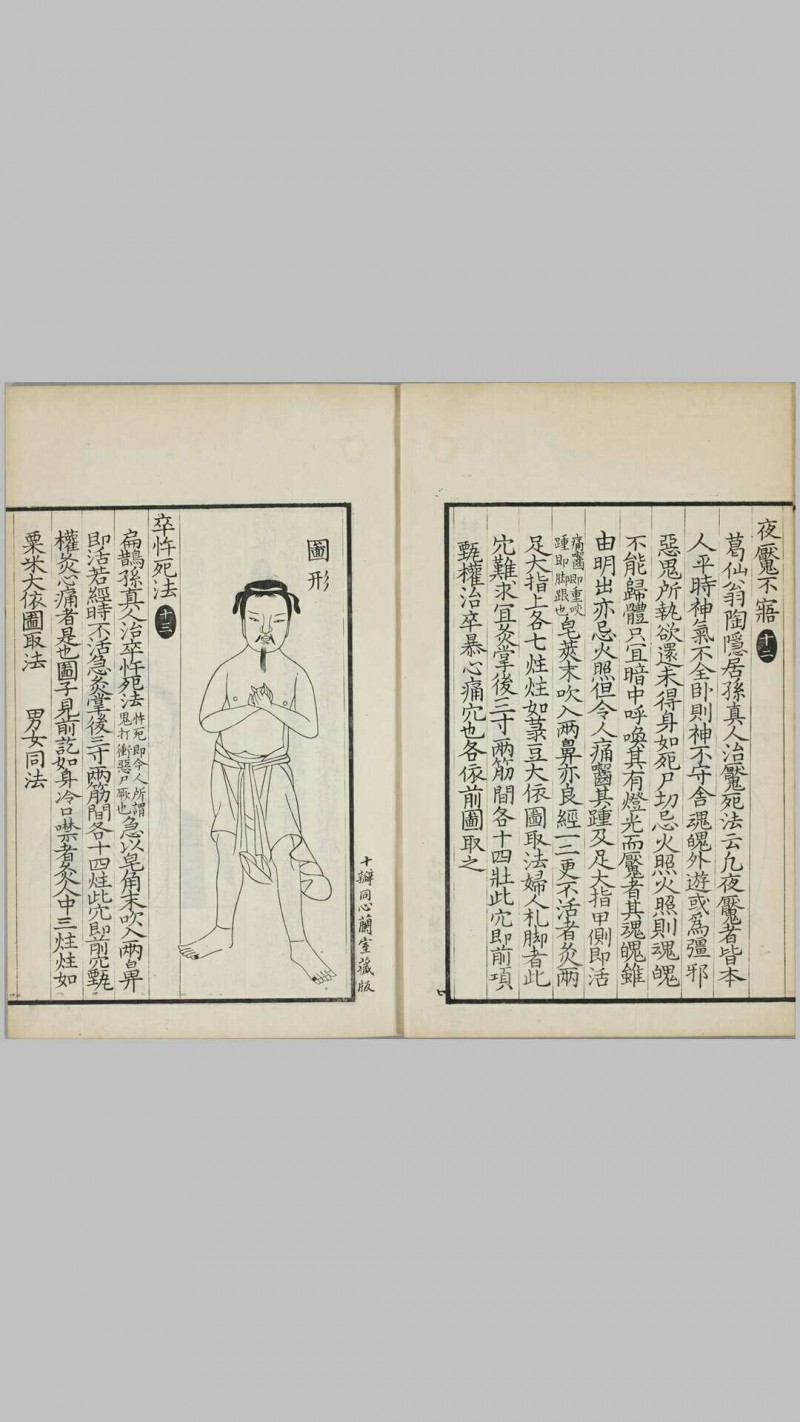 夜魘不寤 十二
葛仙翁陶隱居孫真人治魘死法云凡夜魘者皆本
人平時神氣不全卧則神不守舍魂魄外遊或為彊邪
惡鬼所執欲還未得身如死尸切忌火照火照則魂魄
不能歸體只宜暗中呼喚其有燈光而魘者其魂魄雖
由明出亦忌火照但令人痛齧其踵及足大指甲側即活
痛齧即重咬
踵即脚跟也
皂莢末吹入兩鼻亦良經一二更不活者灸兩
足大指上各七炷炷如菉豆大依圖取法婦人札脚者此
穴難求宜灸掌後三寸兩筋間各十四壯此穴即前項
甄權治卒暴心痛穴也各依前圖取之
圖形
十瓣同心蘭室藏版
卒忤死法 十三
扁鵲孫真人治卒忤死法
忤死即令人所謂
鬼打衝惡尸厥也
急以皂角末吹入兩鼻
即活若經時不活急灸掌後三寸兩筋間各十四炷此穴即前穴甄
權灸心痛者是也圖子見前訖如身冷口噤者灸人中三炷炷如
粟米大依圖取法 男女同法